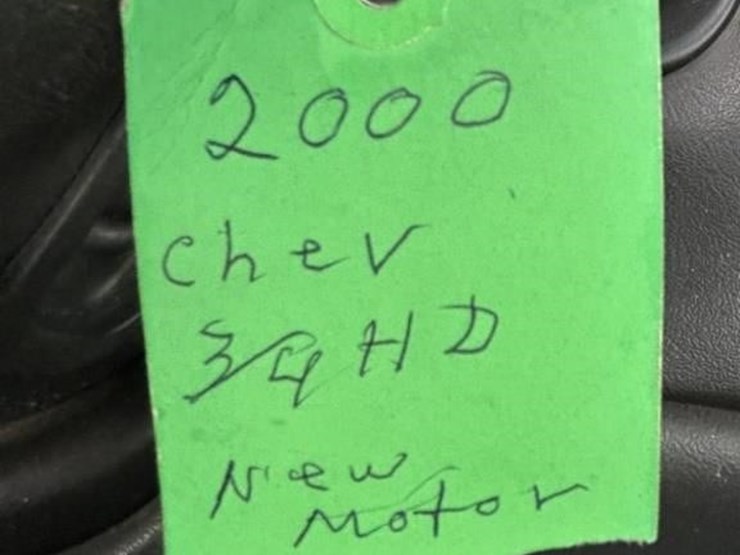 2000
chev
3/4 HD
New
Motor